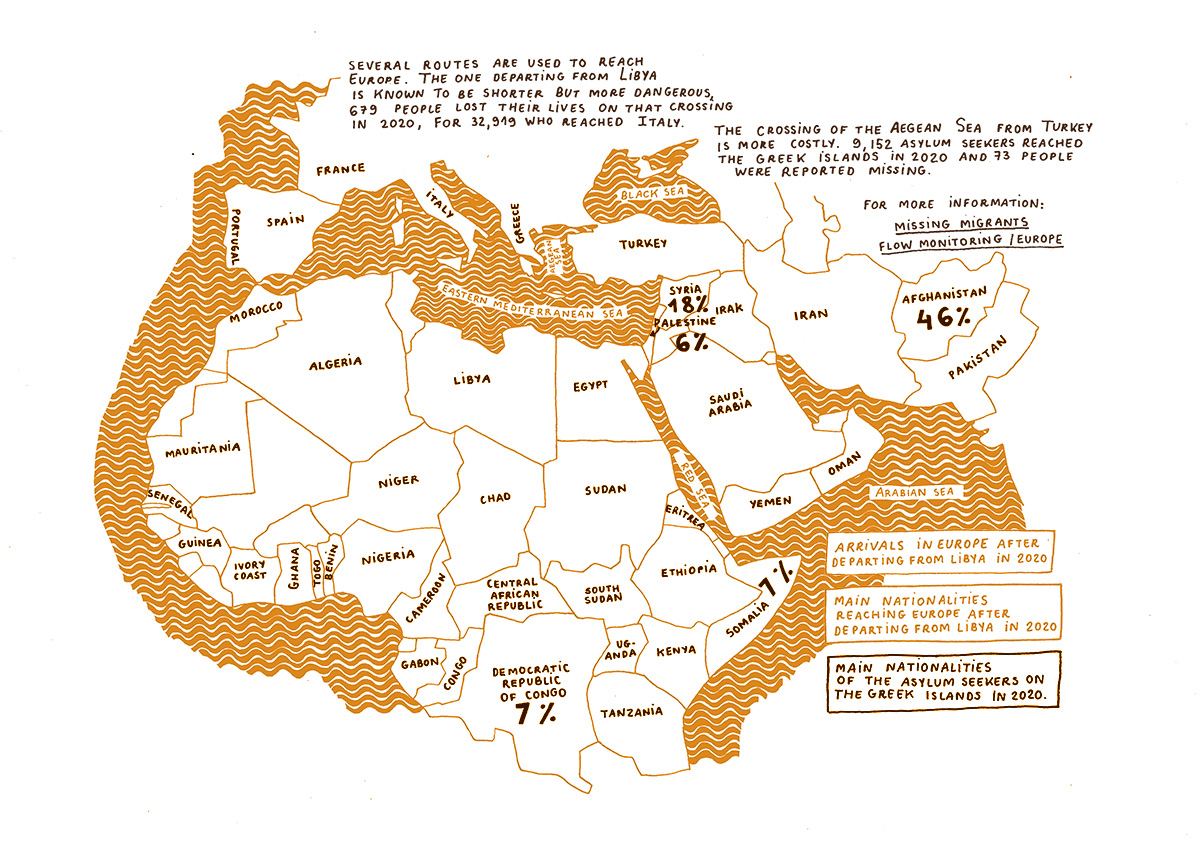 SEVERAL ROUTES ARE USED TO REACH
EUROPE. THE ONE DEPARTING FROM LIBYA
IS KNOWN TO BE SHORTER BUT MORE DANGEROUS,
679 PEOPLE LOST THEIR LIVES ON THAT CROSSING
IN 2020, FOR 32,919 WHO REACHED ITALY.
THE CROSSING OF THE AEGEAN SEA FROM TURKEY
IS MORE COSTLY. 9,152 ASYLUM SEEKERS REACHED
THE GREEK ISLANDS IN 2020 AND 73 PEOPLE
WERE REPORTED MISSING.
FOR MORE INFORMATION:
MISSING MIGRANTS
FLOW MONITORING / EUROPE
FRANCE
ITALY
BLACK SEA
PORTUGAL
SPAIN
GREECE
AEGEAN
SEA
TURKEY
EASTERN MEDITERRANEAN SEA
SYRIA
18%
PALESTINE
6%
IRAK
IRAN
AFGHANISTAN
46%
PAKISTAN
MOROCCO
ALGERIA
LIBYA
EGYPT
SAUDI
ARABIA
MAURITANIA
NIGER
CHAD
SUDAN
RED SEA
YEMEN
OMAN
ARABIAN SEA
SENEGAL
GUINEA
IVORY
COAST
GHANA
TOGO
BENIN
NIGERIA
CAMEROON
CENTRAL
AFRICAN
REPUBLIC
SOUTH
SUDAN
ERITREA
ETHIOPIA
SOMALIA 7%
GABON
CONGO
DEMOCRATIC
REPUBLIC
OF CONGO
7%
UG-
ANDA
KENYA
TANZANIA
ARRIVALS IN EUROPE AFTER
DEPARTING FROM LIBYA IN 2020
MAIN NATIONALITIES
REACHING EUROPE AFTER
DEPARTING FROM LIBYA IN 2020
MAIN NATIONALITIES
OF THE ASYLUM SEEKERS ON
THE GREEK ISLANDS IN 2020.